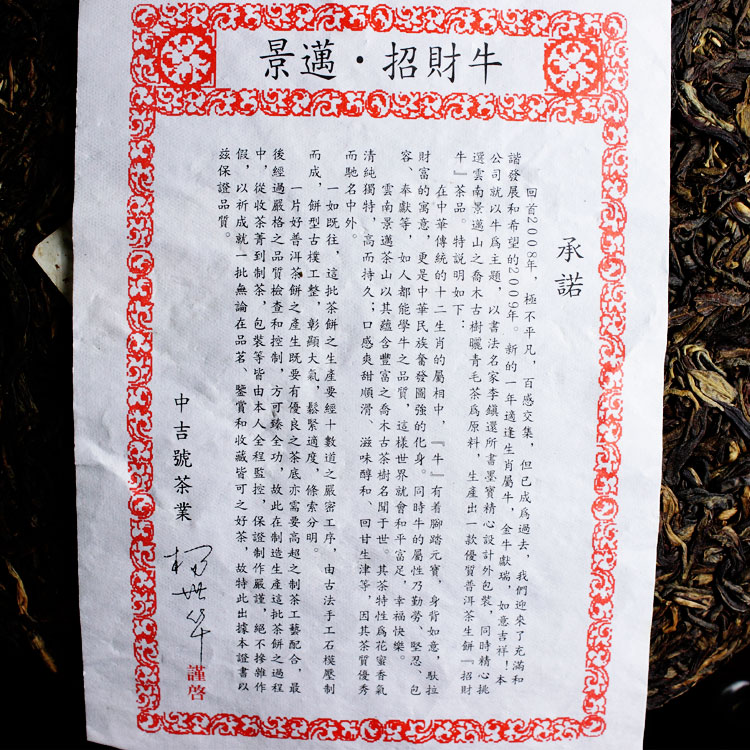 景邁·招財牛
承諾
回首2008年，極不平凡，百感交集，但已成爲過去，我們迎來了充滿和
諧發展和希望的2009年。新的一年適逢生肖屬牛，金牛獻瑞，如意吉祥！本
公司就以牛爲主題，以書法名家李鎭還所書墨寶精心設計外包裝，同時精心挑
選雲南景邁山之喬木古樹曬青毛茶爲原料，生產出一款優質普洱茶生餅『招財
牛』茶品。特説明如下：
在中華傳統的十二生肖的屬相中，『牛』有着腳踏元寶，身背如意，馱拉
財富的寓意，更是中華民族奮發圖強的化身。同時牛的屬性乃勤勞、堅忍、包
容、奉獻等，如人都能學牛之品質，這樣世界就會和平富足，幸福快樂。
雲南景邁茶山以其蘊含豐富之喬木古茶樹名聞于世。其茶特性爲花蜜香氣
清純獨特，高而持久；口感爽甜順滑、滋味醇和、回甘生津等，因其茶質優秀
而馳名中外。
一如既往，這批茶餅之生產要經十數道之嚴密工序，由古法手工石模壓制
而成，餅型古樸工整，彰顯大氣，鬆緊適度，條索分明。
一片好普洱茶餅之產生既要有優良之茶底亦需要高超之制茶工藝配合，最
後經過嚴格之品質檢查和控制，方可臻全功，故此在制造生産這批茶餅之過程
中，從收茶菁到制茶，包裝等皆由本人全程監控，保證制作嚴謹，絕不摻雜作
假，以祈成就一批無論在品茗、鑒賞和收藏皆可之好茶，故特此出據本證書以
兹保證品質。
中吉號茶業
謹啓